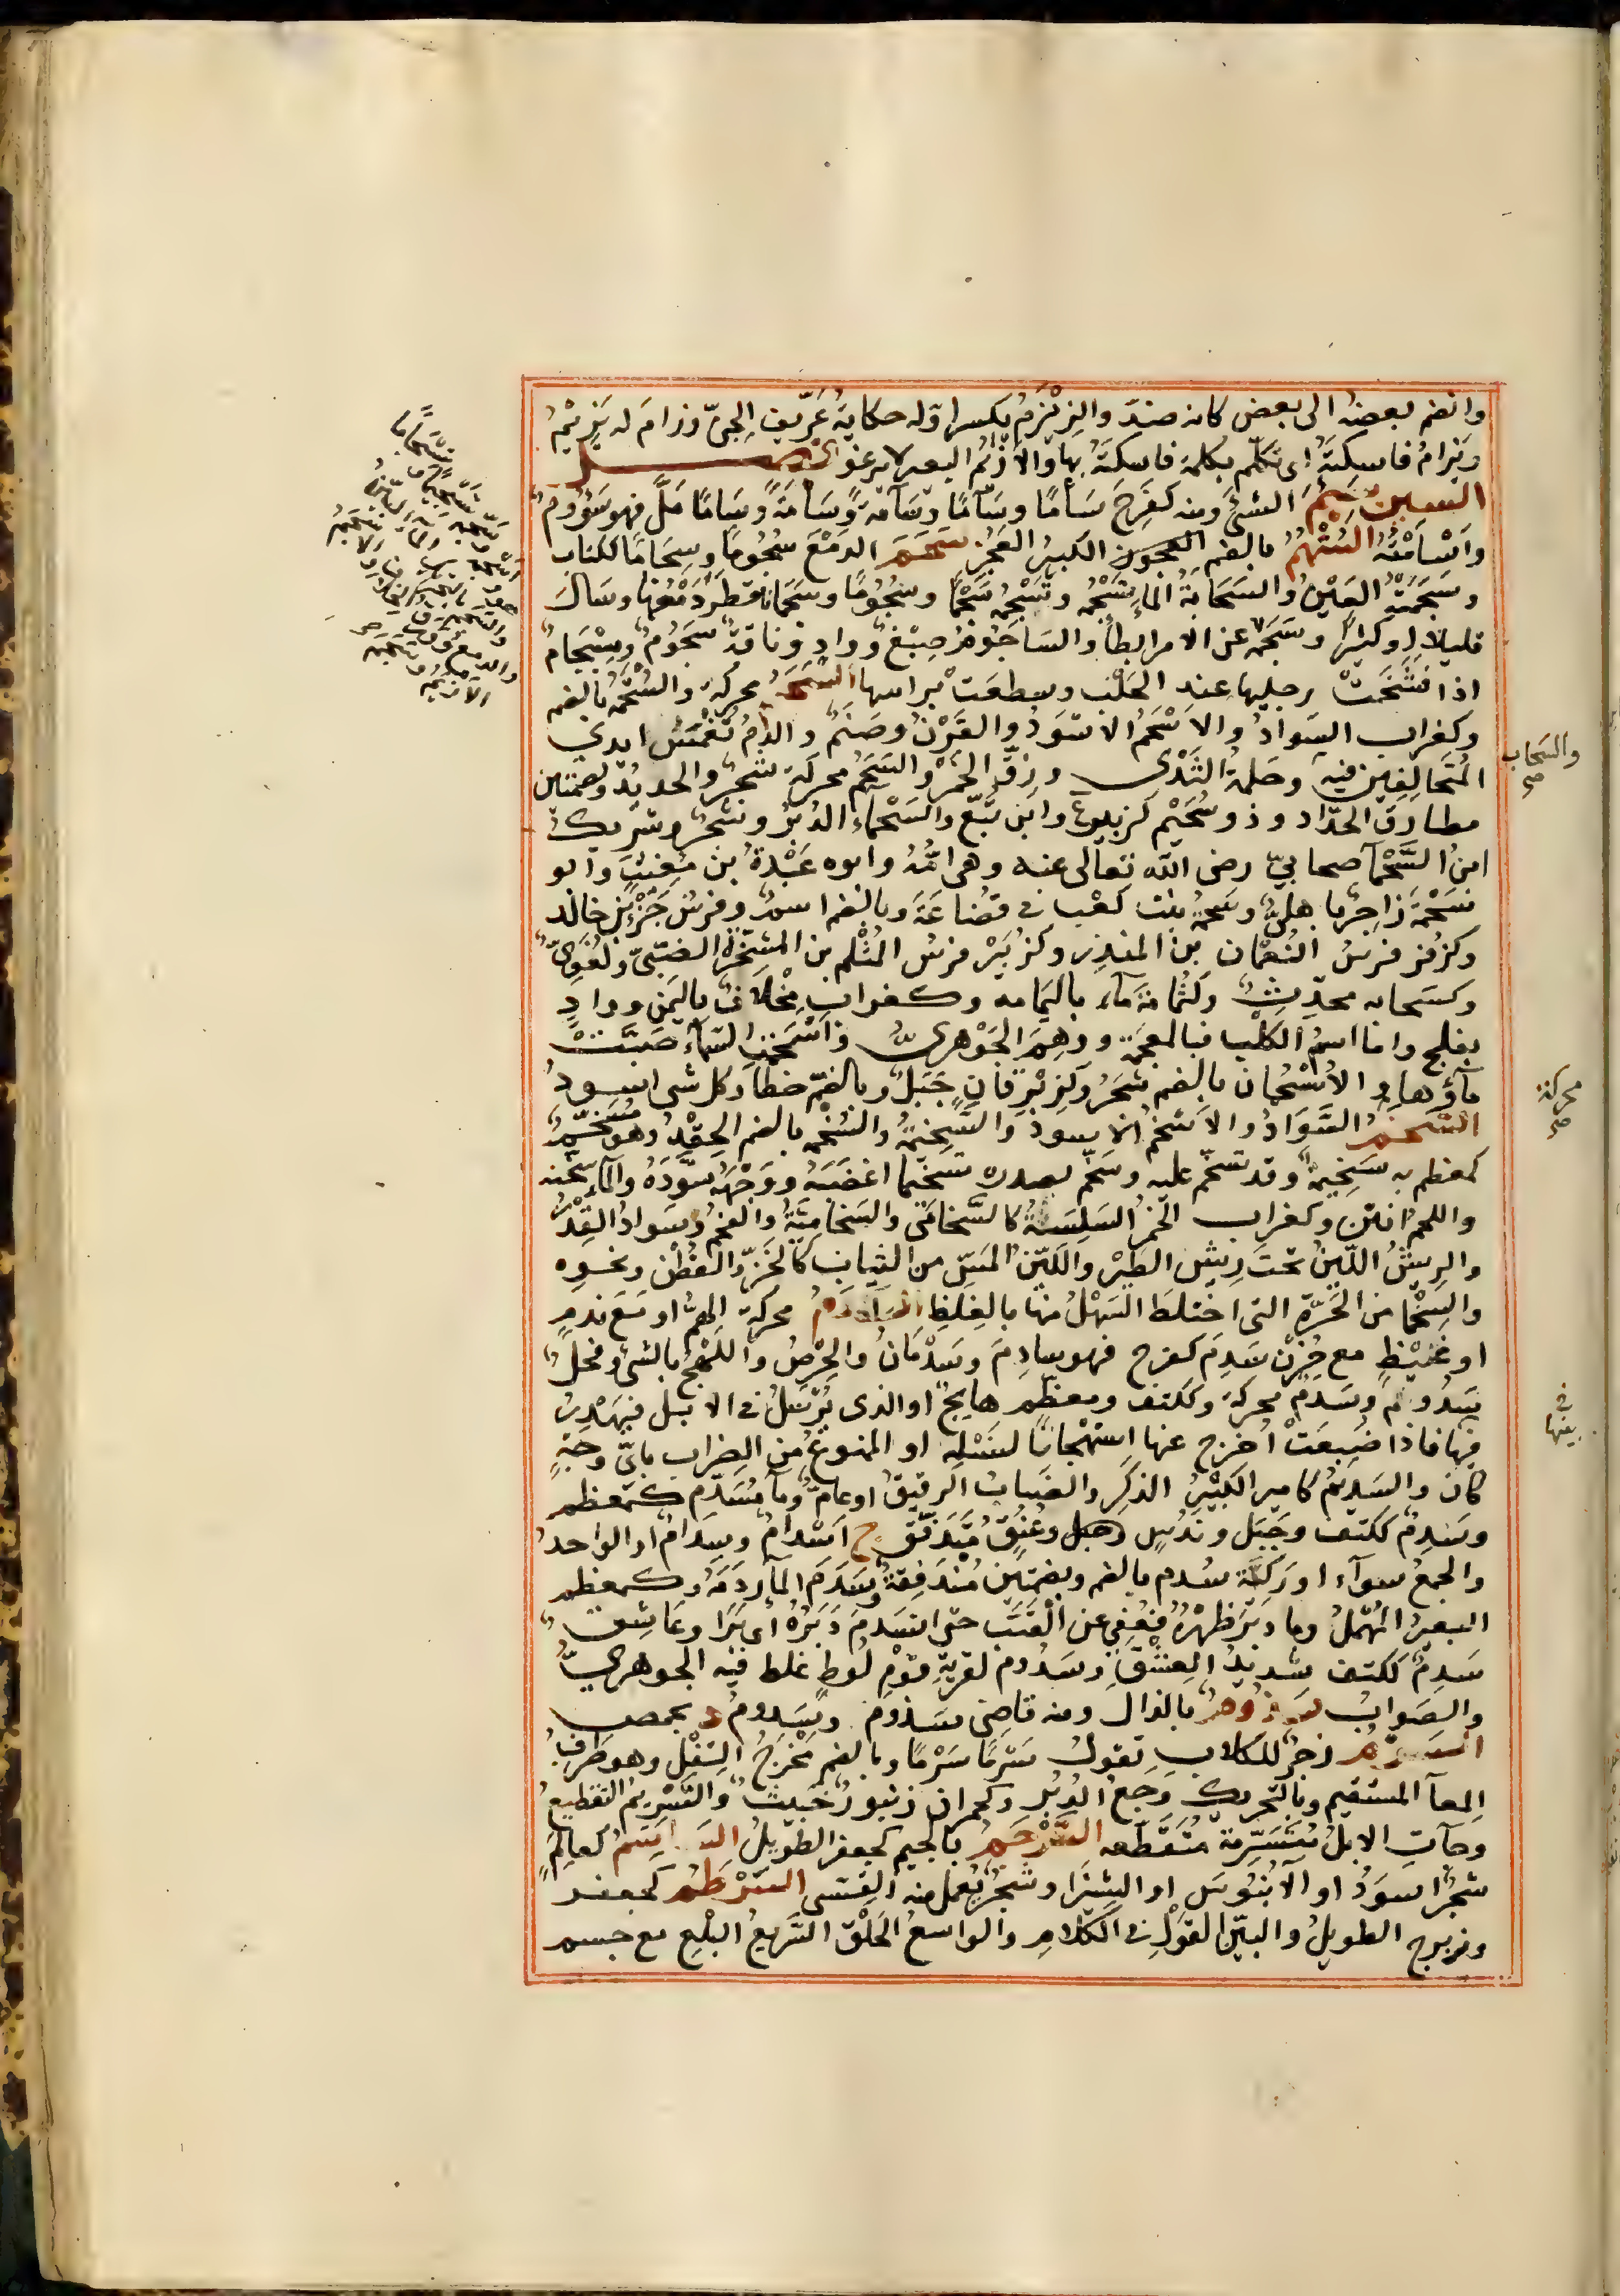 وانضم بعضه الى بعض كانه ضد والزيزيم بكسر اوله حكاية عزيف الجن وزام له يزيم
ويزام فاسكته اى تكلم بكلمة فاسكته بها والازيم البعير لا يرغو فصل
السين سئم الشئ ومنه كفرح سأما وسأما وسآمة وسأمة وسآما مل فهو سؤوم
واسأمته الستهم بالضم الكبير العجز سجم الدمع سجوما وسجاما ككتاب
وسجمته العين والسحابة الماء تسجمه وتسجمه سجما وسجوما وسجمانا قطر دمعها وسال
قليلا او كثيرا وسجم عن الامر ابطأ والساجوم صبغ وواد وناقة سجوم ومسجام
اذا فشخت رجليها عند الحلب وسطعت براسها السحم محركة والسحمة بالضم
وكغراب السواد والاسحم الاسود والقرن وصنم والدم تغمس ايدى
المتحالفين فيه وحلمة الثدى وزق الخمر والسحم محركة شجر والحديد وبضمتين
مطارق الحداد وذو سحيم كزبير وابن تبع والسحماء الدبر وشجر وشريك
ابن السحماء صحابى رضى الله تعالى عنه وهى امه وابوه عبدة بن مغيث وابو
سحمة راجز باهلى وسحمة بنت كعب فى قضاعة وبالضم اسم وفرس جزء بن خالد
وكزفر فرس النعمان بن المنذر وكزبير فرس المثلم بن المشخرة الضبى ولغوى
وكسحابة محدث وكثمامة ماء باليمامه وكغراب مخلاف باليمن وواد
بفلج واما اسم الكلب فبالمعجمة ووهم الجوهرى واسحمت السماء صبت
ماؤها والاسحمان بالضم شجر وكزبرقان جبل وبالضم خطأ وكل شى اسود
السخم السواد والاسخم الاسود والسخيمة والسخمة بالضم الحقد وهو مسخم
كمعظم به سخيمة وقد تسخم عليه وسخم بصدره تسخيما اغضبه ووجهه سوده والماء سخنه
واللحم انتن وكغراب الخمر السلسة كالسخامى والسخامية والفحم وسواد القدر
والريش اللين تحت ريش الطير واللين المس من الثياب كالخز والقطن ونحوه
والسخما من الحرة التى اختلط السهل منها بالغليظ السدم محركة الهم او مع ندم
او غيظ مع حزن سدم كفرح فهو سادم وسدمان والحرص واللهج بالشئ وفحل
سدوم وسدم محركة وككتف ومعظم هايج او الذى يرسل فى الابل فيهدر
فيها فاذا ضبعت اخرج عنها استهجانا لنسله او الممنوع من الضراب باى وجه
كان والسديم كامير الكثير الذكر والضباب الرقيق او عام وماء مسدم كمعظم
وسدم ككتف وجبل وندس وعنق متدفق ج اسدام وسدام او الواحد
والجمع سواء او ركية سدم بالضم وبضمتين مندفقة وسدم الماء ردمه وكمعظم
البعير المهمل وما دبر ظهره فعفى عن القتب حتى انسدم دبره اى برا وعاشق
سدم ككتف شديد العشق وسدوم لقرية قوم لوط غلط فيه الجوهرى
والصواب سذوم بالذال ومنه قاضى سذوم وسدوم د بحمص
السرم زجر للكلاب تقول سرما سرما وبالضم مخرج الثفل وهو طرف
المعا المستقيم وبالتحريك وجع الدبر وكحمران زنبور خبيث والتسريم التقطيع
وجاءت الابل متسرمة متقطعه السرجم بالجيم كجعفر الطويل الساسم كعالم
شجر اسود او الآبنوس او الشيزا وشجر يعمل منه القسى السرطم كجعفر
وزبرج الطويل والبين القول فى الكلام والواسع الحلق السريع البلع مع جسم
والسحاب
صح
محركة
صح
فى
بيتها